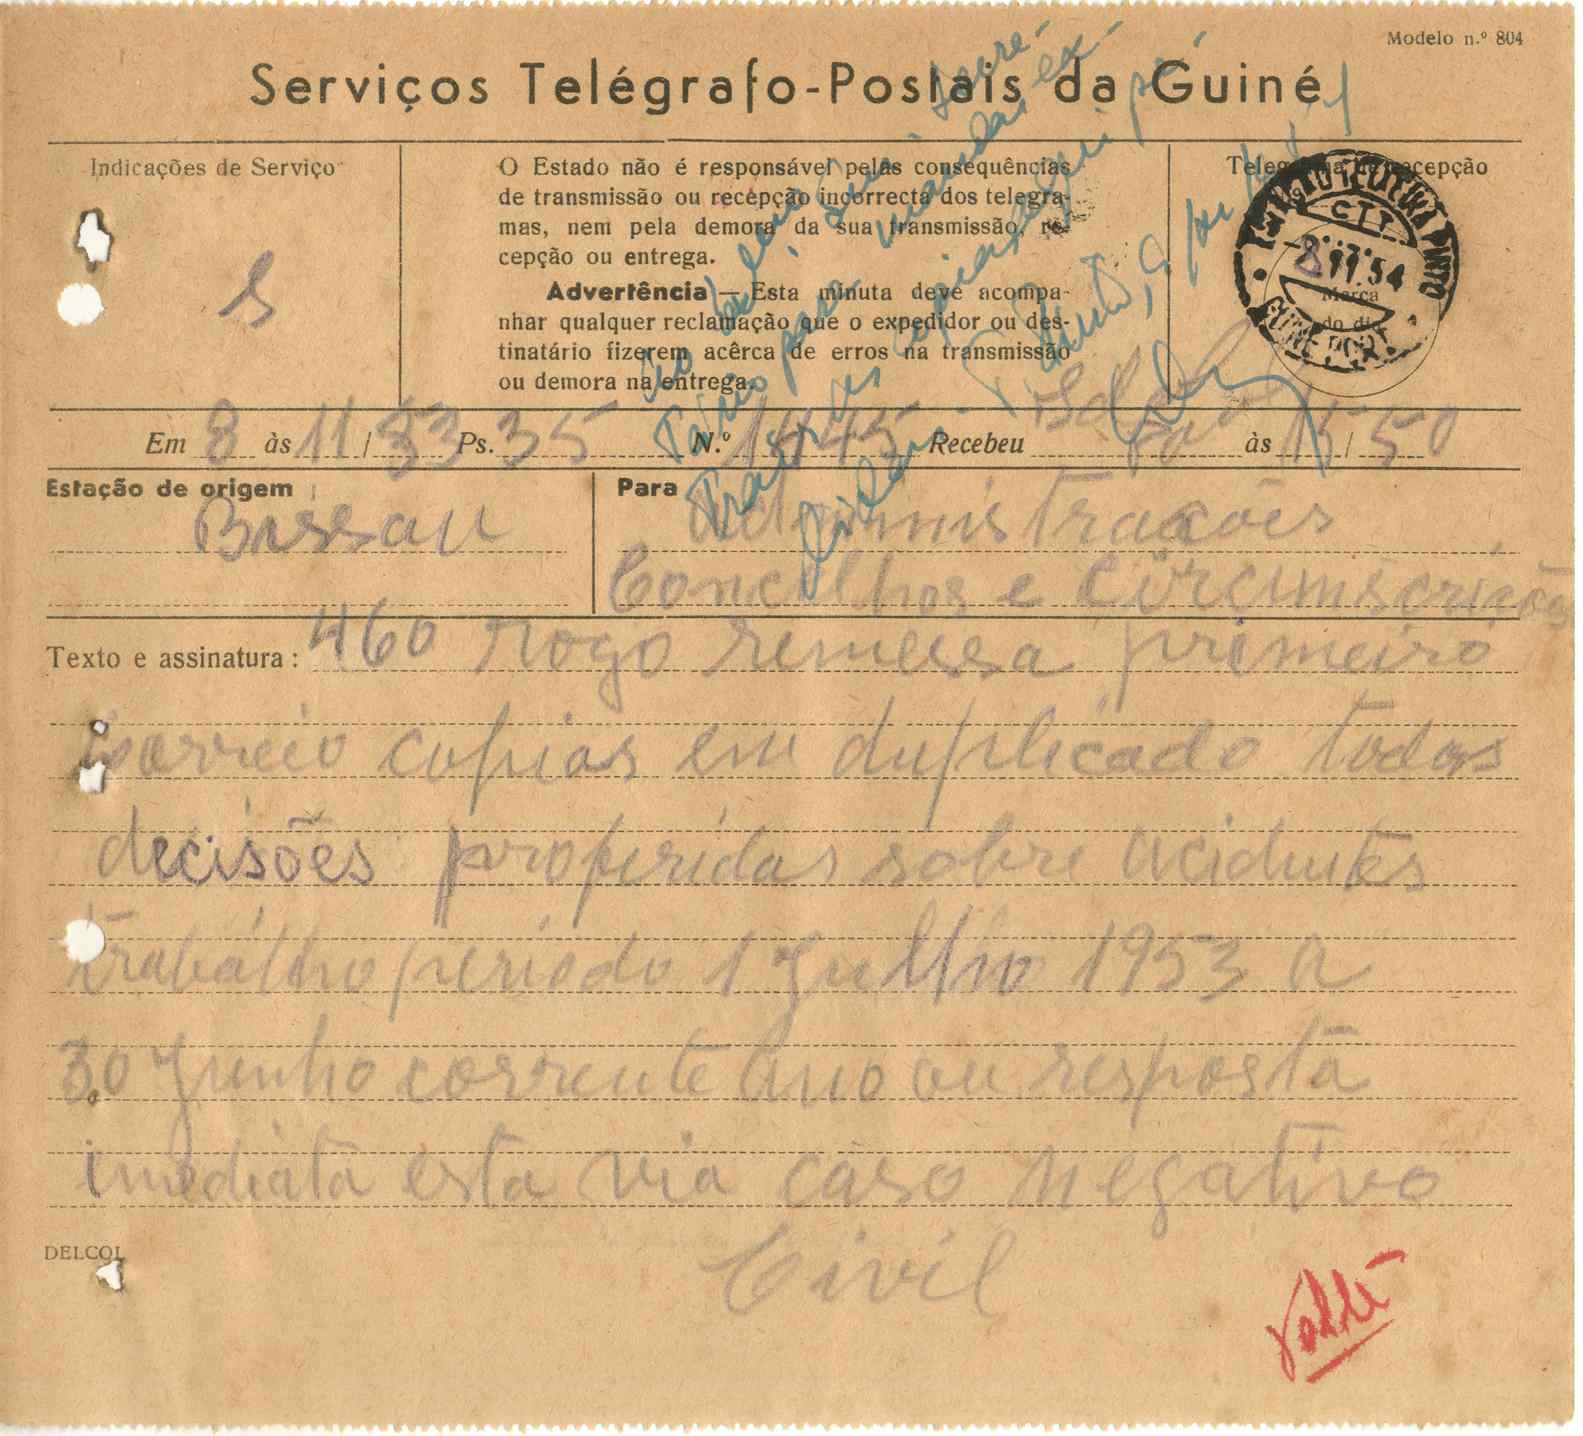 Modelo n.º 804
Serviços Telégrafo-Postais da Guiné
Indicações de Serviço
S
O Estado não é responsável pelas consequências
de transmissão ou recepção incorrecta dos telegra-
mas, nem pela demora da sua transmissão, re-
cepção ou entrega.
Advertência — Esta minuta deve acompa-
nhar qualquer reclamação que o expedidor ou des-
tinatário fizerem acêrca de erros na transmissão
ou demora na entrega.
Telegrama de recepção
CTT
8 11.54
GUINÉ PORT.
Marca
do dia
Em 8 às 11/33 Ps. 35 N.º 1445 Recebeu às 15/50
Estação de origem
Bissau
Para Administrações
Concelhos e Circunscrições
Texto e assinatura: 460 rogo remessa primeiro
correio copias em duplicado todas
decisões proferidas sobre acidentes
trabalho periodo 1 Julho 1953 a
30 Junho corrente ano ou resposta
imediata esta via caso negativo
Civil
DELCOL